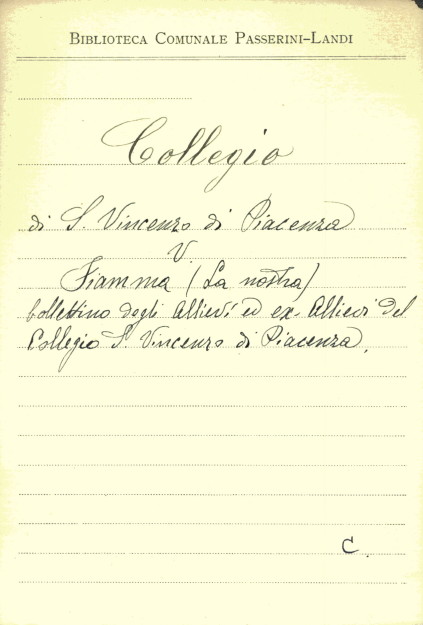 BIBLIOTECA COMUNALE PASSERINI-LANDI
Collegio
di S. Vincenzo di Piacenza
V.
Fiamma (La nostra)
bollettino degli Allievi ed ex-Allievi del
Collegio S. Vincenzo di Piacenza.
C.